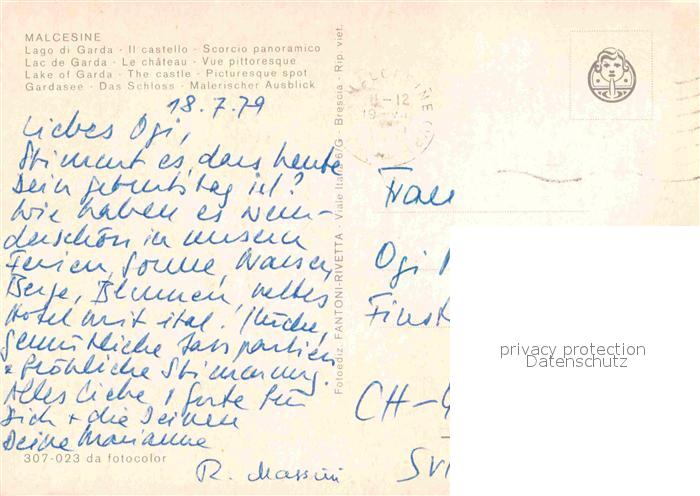 MALCESINE
Lago di Garda · Il castello · Scorcio panoramico
Lac de Garda · Le château · Vue pittoresque
Lake of Garda · The castle · Picturesque spot
Gardasee · Das Schloss · Malerischer Ausblick
18.7.79
Liebes Ogi,
Stimmt es, dass heute
Dein Geburtstag ist?
Wir haben es wun-
derschön in unsern
Ferien, Sonne, Wasser,
Berge, Blumen, nettes
Hotel mit ital. Küche,
Gemütliche Jasspartien
+ fröhliche Stimmung.
Alles Liebe + Gute für
Dich + die Deinen
Deine Marianne
R. Massini
307-023 da fotocolor
Fotoediz. FANTONI-RIVETTA - Viale Italia 6/G - Brescia - Rip. viet.
-12
Frau
Ogi
CH-
privacy protection
Datenschutz